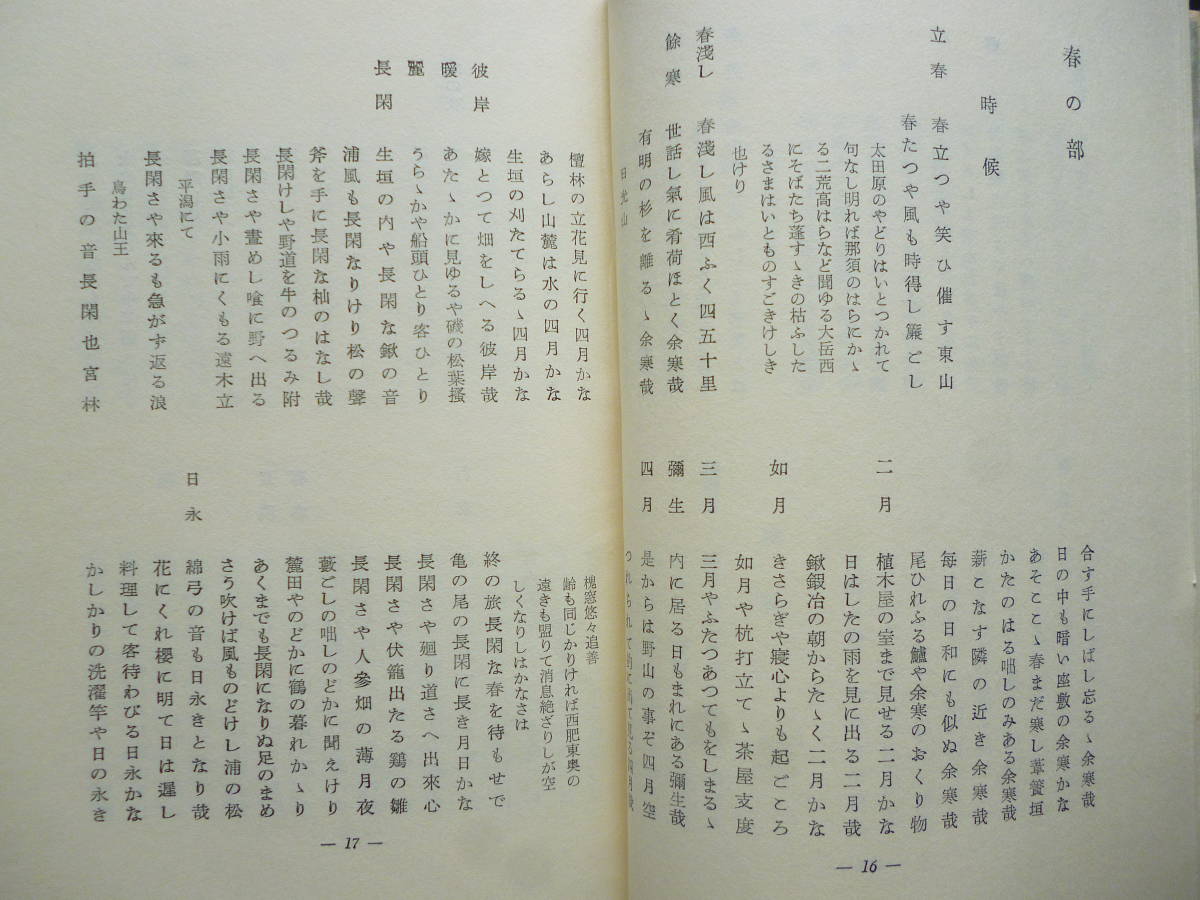 春の部
時候
立春 春立つや笑ひ催す東山
春たつや風も時得し簾ごし
太田原のやどりはいとつかれて
句なし明れば那須のはらにかゝ
る二荒高はらなど聞ゆる大岳西
にそばたち蓬すゝきの枯ふした
るさまはいとものすごきけしき
也けり
春淺し 春淺し風は西ふく四五十里
餘寒 世話し氣に肴荷ほとく余寒哉
有明の杉を離るゝ余寒哉
日光山
合す手にしばし忘るゝ余寒哉
日の中も暗い座敷の余寒かな
あそここゝ春まだ寒し葦簀垣
かたのはる咄しのみある余寒哉
薪こなす隣の近き余寒哉
毎日の日和にも似ぬ余寒哉
尾ひれふる鱸や余寒のおくり物
二月 植木屋の室まで見せる二月かな
日はしたの雨を見に出る二月哉
鍬鍛冶の朝からたゝく二月かな
如月 きさらぎや寢心よりも起ごころ
如月や杭打立てゝ茶屋支度
三月 三月やふたつあつてもをしまるゝ
彌生 内に居る日もまれにある彌生哉
四月 是からは野山の事ぞ四月空
つれられて
— 16 —
檀林の立花見に行く四月かな
あらし山麓は水の四月かな
生垣の刈たてらるゝ四月かな
彼岸 嫁とつて畑をしへる彼岸哉
暖 あたゝかに見ゆるや磯の松葉搔
麗 うらゝかや船頭ひとり客ひとり
長閑 生垣の内や長閑な鍬の音
浦風も長閑なりけり松の聲
斧を手に長閑な杣のはなし哉
長閑けしや野道を牛のつるみ附
長閑さや晝めし喰に野へ出る
長閑さや小雨にくもる遠木立
平潟にて
長閑さや來るも急がず返る浪
鳥わた山王
拍手の音長閑也宮林
槐窓悠々追善
齡も同じかりければ西肥東奥の
遠きも盟りて消息絶ざりしが空
しくなりしはかなさは
終の旅長閑な春を待もせで
亀の尾の長閑に長き月日かな
長閑さや廻り道さへ出來心
長閑さや伏籠出たる鷄の雛
長閑さや人參畑の薄月夜
藪ごしの咄しのどかに聞えけり
麓田やのどかに鶴の暮れかゝり
あくまでも長閑になりぬ足のまめ
さう吹けば風ものどけし浦の松
日永 綿弓の音も日永きとなり哉
花にくれ櫻に明て日は遲し
料理して客待わびる日永かな
かしかりの洗濯竿や日の永き
— 17 —